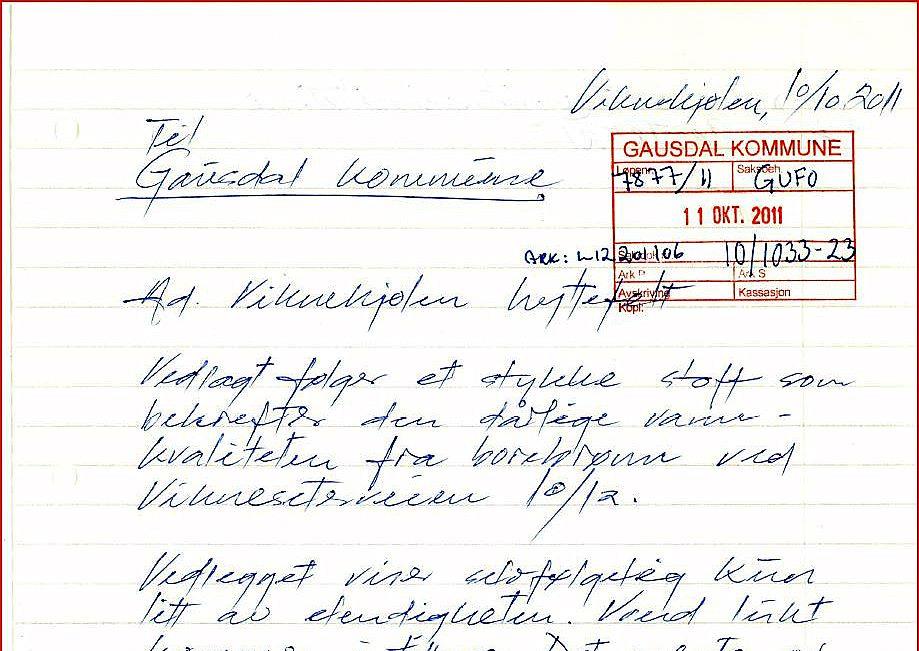 Viknekjølen, 10/10.2011
Til
Gausdal Kommune
GAUSDAL KOMMUNE
Løpenr 7877/11 Saksbeh. GUFO
11 OKT. 2011
ARK: 201/06 10/1033-23
Ark P Ark S
Avskriving Kassasjon
Kopi:
Ad. Viknekjølen hyttefelt
Vedlagt følger et stykke stoff som
bekrefter den dårlige vann-
kvaliteten fra borebrønn ved
Vikneseterveien 10/12.
Vedlegget viser selvfølgelig kun
litt av elendigheten. Vond lukt